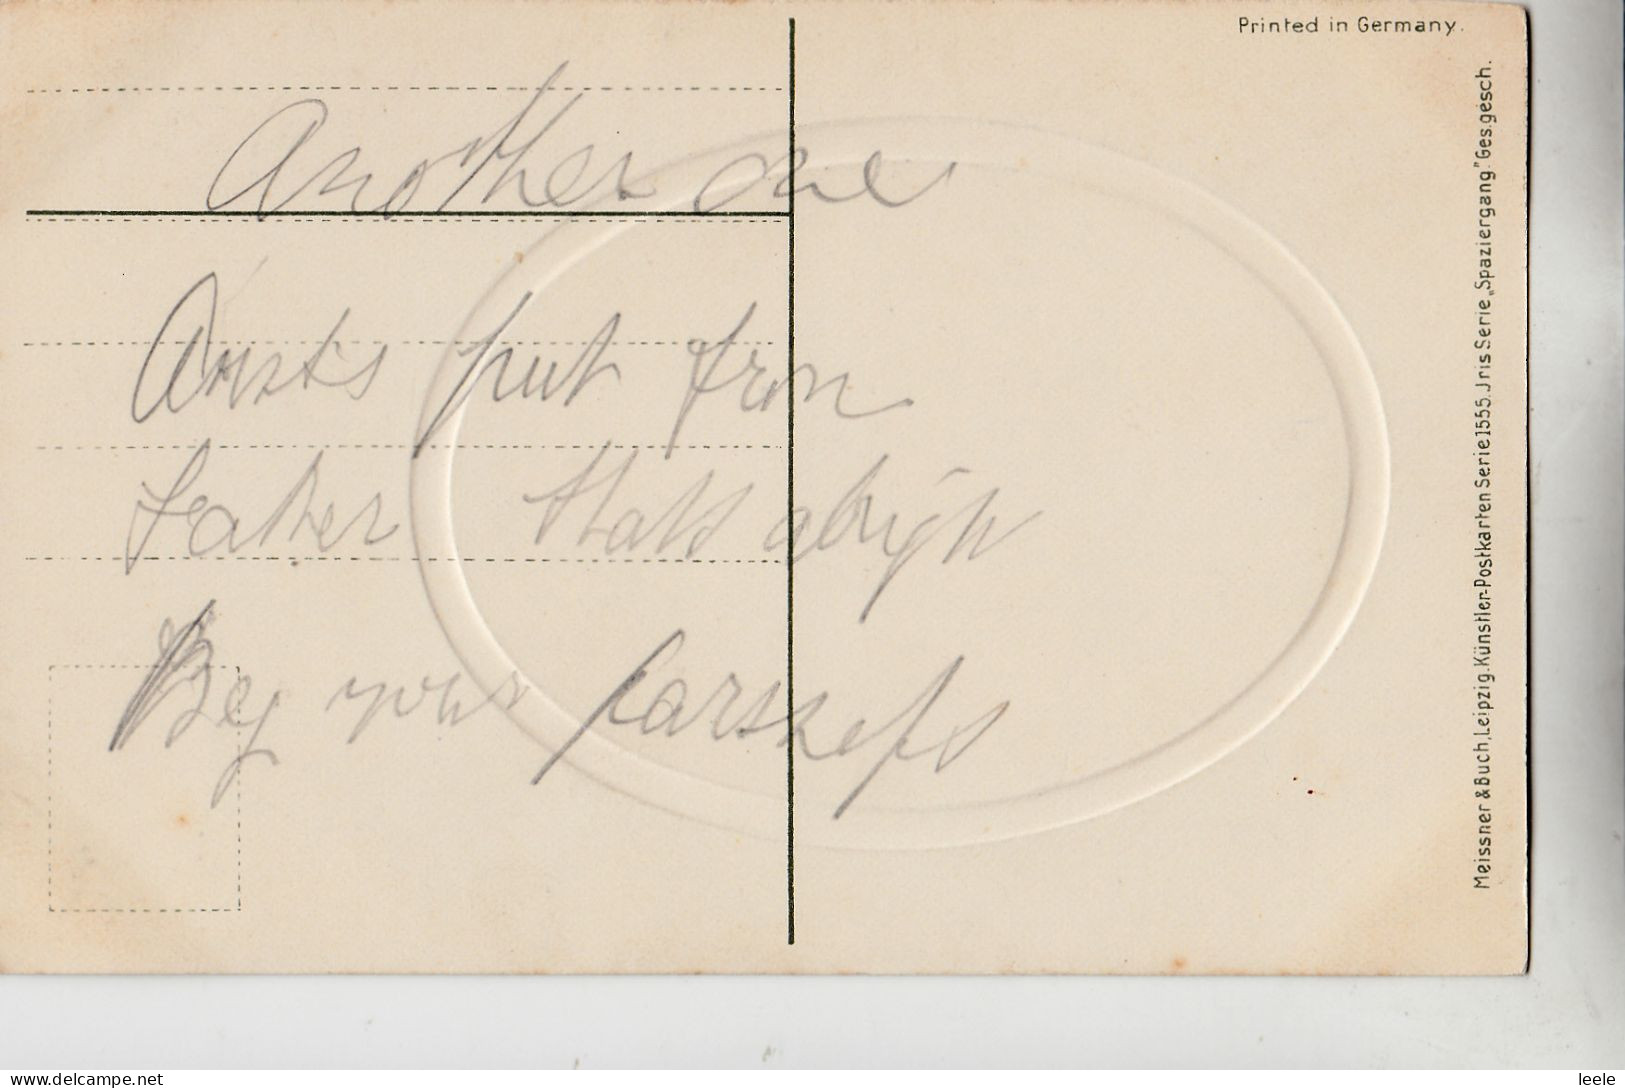 Printed in Germany.
Another one
put from
Father thats alright
Beg your
Meissner & Buch, Leipzig. Künstler-Postkarten Serie 1555. Jris Serie „Spaziergang.” Ges. gesch.
www.delcampe.net
leele